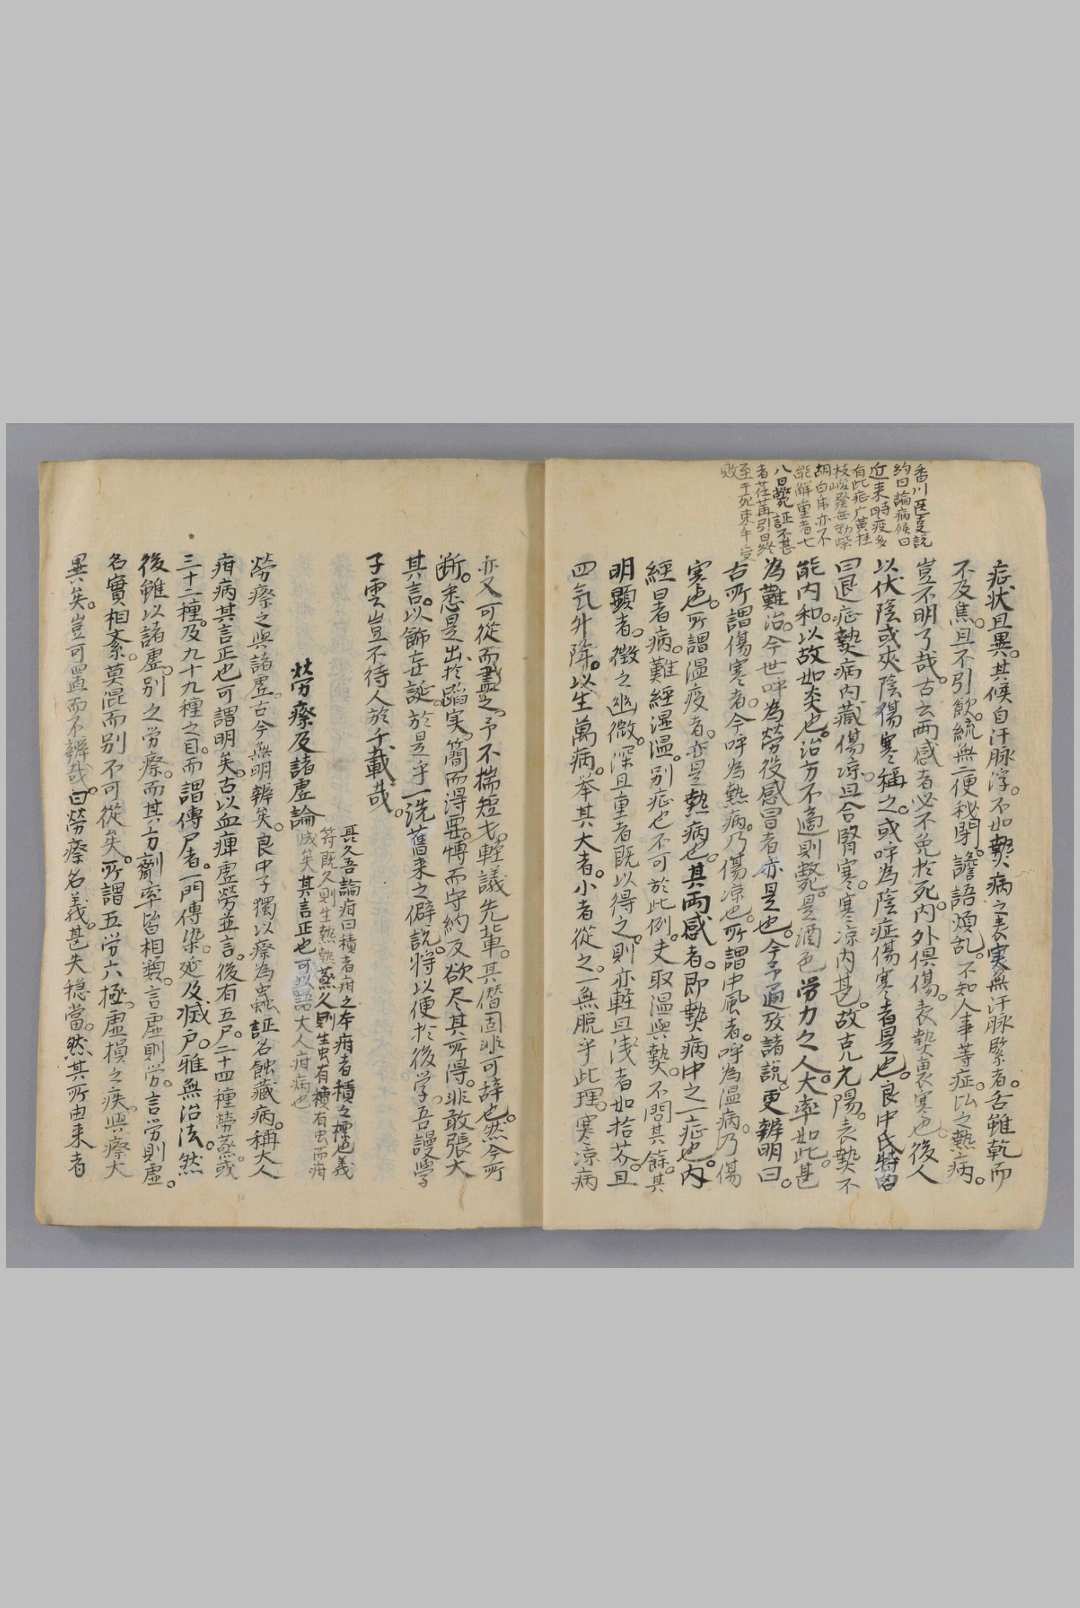 香川氏文説
約曰論病候曰
近来時疫多
自此症广黄桂
枝
胡白虎亦不
能解重者七
八日斃証不甚
者荏苒引日
至于死
敗
症状且異。其候自汗脉浮。不如熱病之表実無汗脉緊者。舌雖乾而
不及焦。且不引飲。統無二便秘閉。譫語煩乱。不知人事等症。以之熱病。
豈不明了哉。古云両感者必不免於死。内外倶傷。表熱裏寒也。後人
以伏陰或夾陰傷寒稱之。或呼為陰症傷寒者是也。良中氏特
曰但症熱病内藏傷涼。且合腎寒。寒涼内甚。故亢陽。表熱不
能内和。以故如炎也。治方不適則斃。是酒色労力之人大率如此。甚
為難治。今世呼為勞後感冒者亦是也。今予遍攷諸説。更辨明曰。
古所謂傷寒者。今呼為熱病。乃傷涼也。所謂中風者。呼為温病。乃傷
寒也。所謂温疫者。亦是熱病也。其両感者。即熱病中之一症也。内
經曰者病。難經湿温。別症也不可於此例。夫取温與熱。不問其餘。其
明顯者。微之幽微。深且重者既以得之。則亦輕且浅者如拾芥。且
四気外降。以生萬病。举其大者。小者從之。一無脱乎此理。寒涼病
亦又可從而盡之。予不揣短才。輕議先輩。其僭固非可辞也。然今所
断。悉是出於蹈実。簡而得要。博而守約。及欲尽其所得。非敢張大
其言。以飾妄誕。於是乎一洗舊来之僻説。将以便於後学。吾謾學
子雲豈不待人於千載哉。
労瘵及諸虚論
長久吾論疳曰積者疳之本疳者積之標也義
苻既久則生熱熱蒸久則生虫有積有虫而疳
成矣其言正也可以語大人疳病也
勞瘵之與諸虚。古今無明辨矣。良中子獨以瘵為虫証名蝕藏病。稱大人
疳病其言正也可謂明矣。古以血痺虚労並言。後有五尸。二十四種労蒸。或
三十二種。及九十九種之目。而謂傳尸者。一門傳染。延及滅戸。雅無治法。然
後雖以諸虚。別之労瘵。而其方劑率皆相類。言虚則労。言労則虚。
名實相紊。莫混而別不可從矣。所謂五労六極。虚損之疾。與瘵大
異矣。豈可置而不辨哉。曰勞瘵名義。甚失穏當。然其所由来者